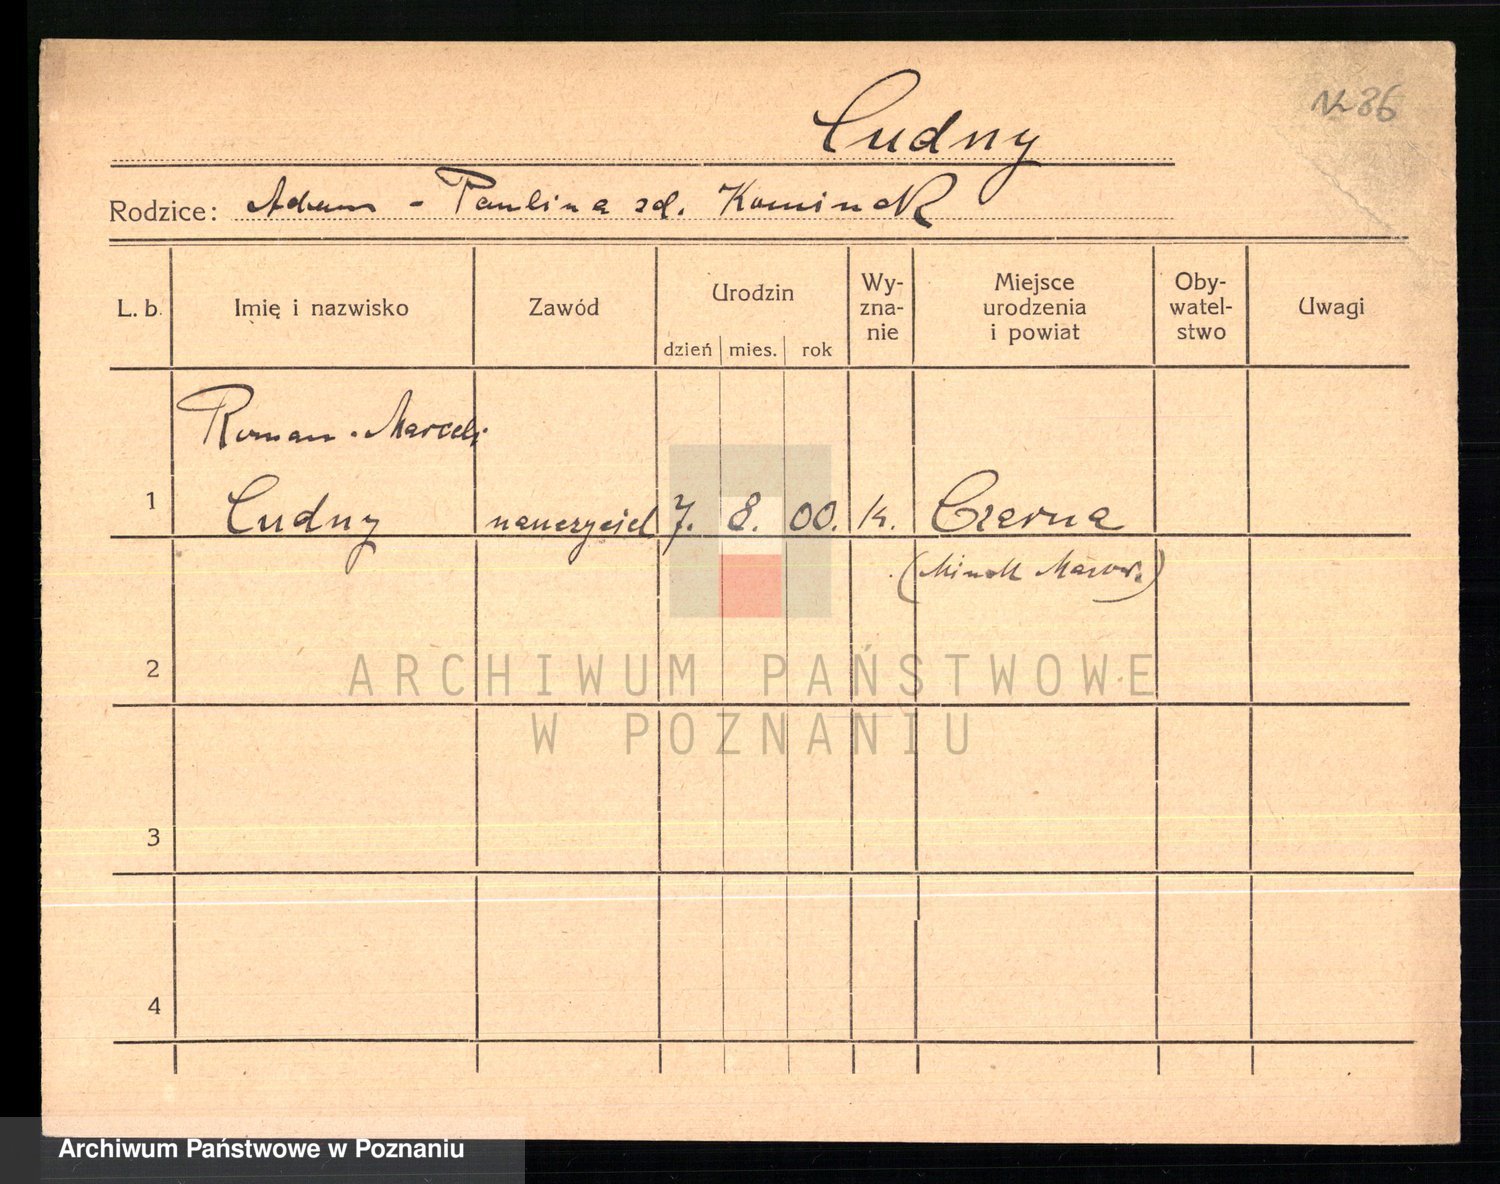 Nr 36
Cudny
Rodzice: Adam - Paulina zd. Kominek
L. b. Imię i nazwisko Zawód Urodzin dzień mies. rok Wy-zna-nie Miejsce urodzenia i powiat Oby-watel-stwo Uwagi
Roman-Marceli
1 Cudny nauczyciel 7. 8. 00. k. Czarna
(Mińsk Mazow.)
2
ARCHIWUM PAŃSTWOWE
W POZNANIU
3
4
Archiwum Państwowe w Poznaniu